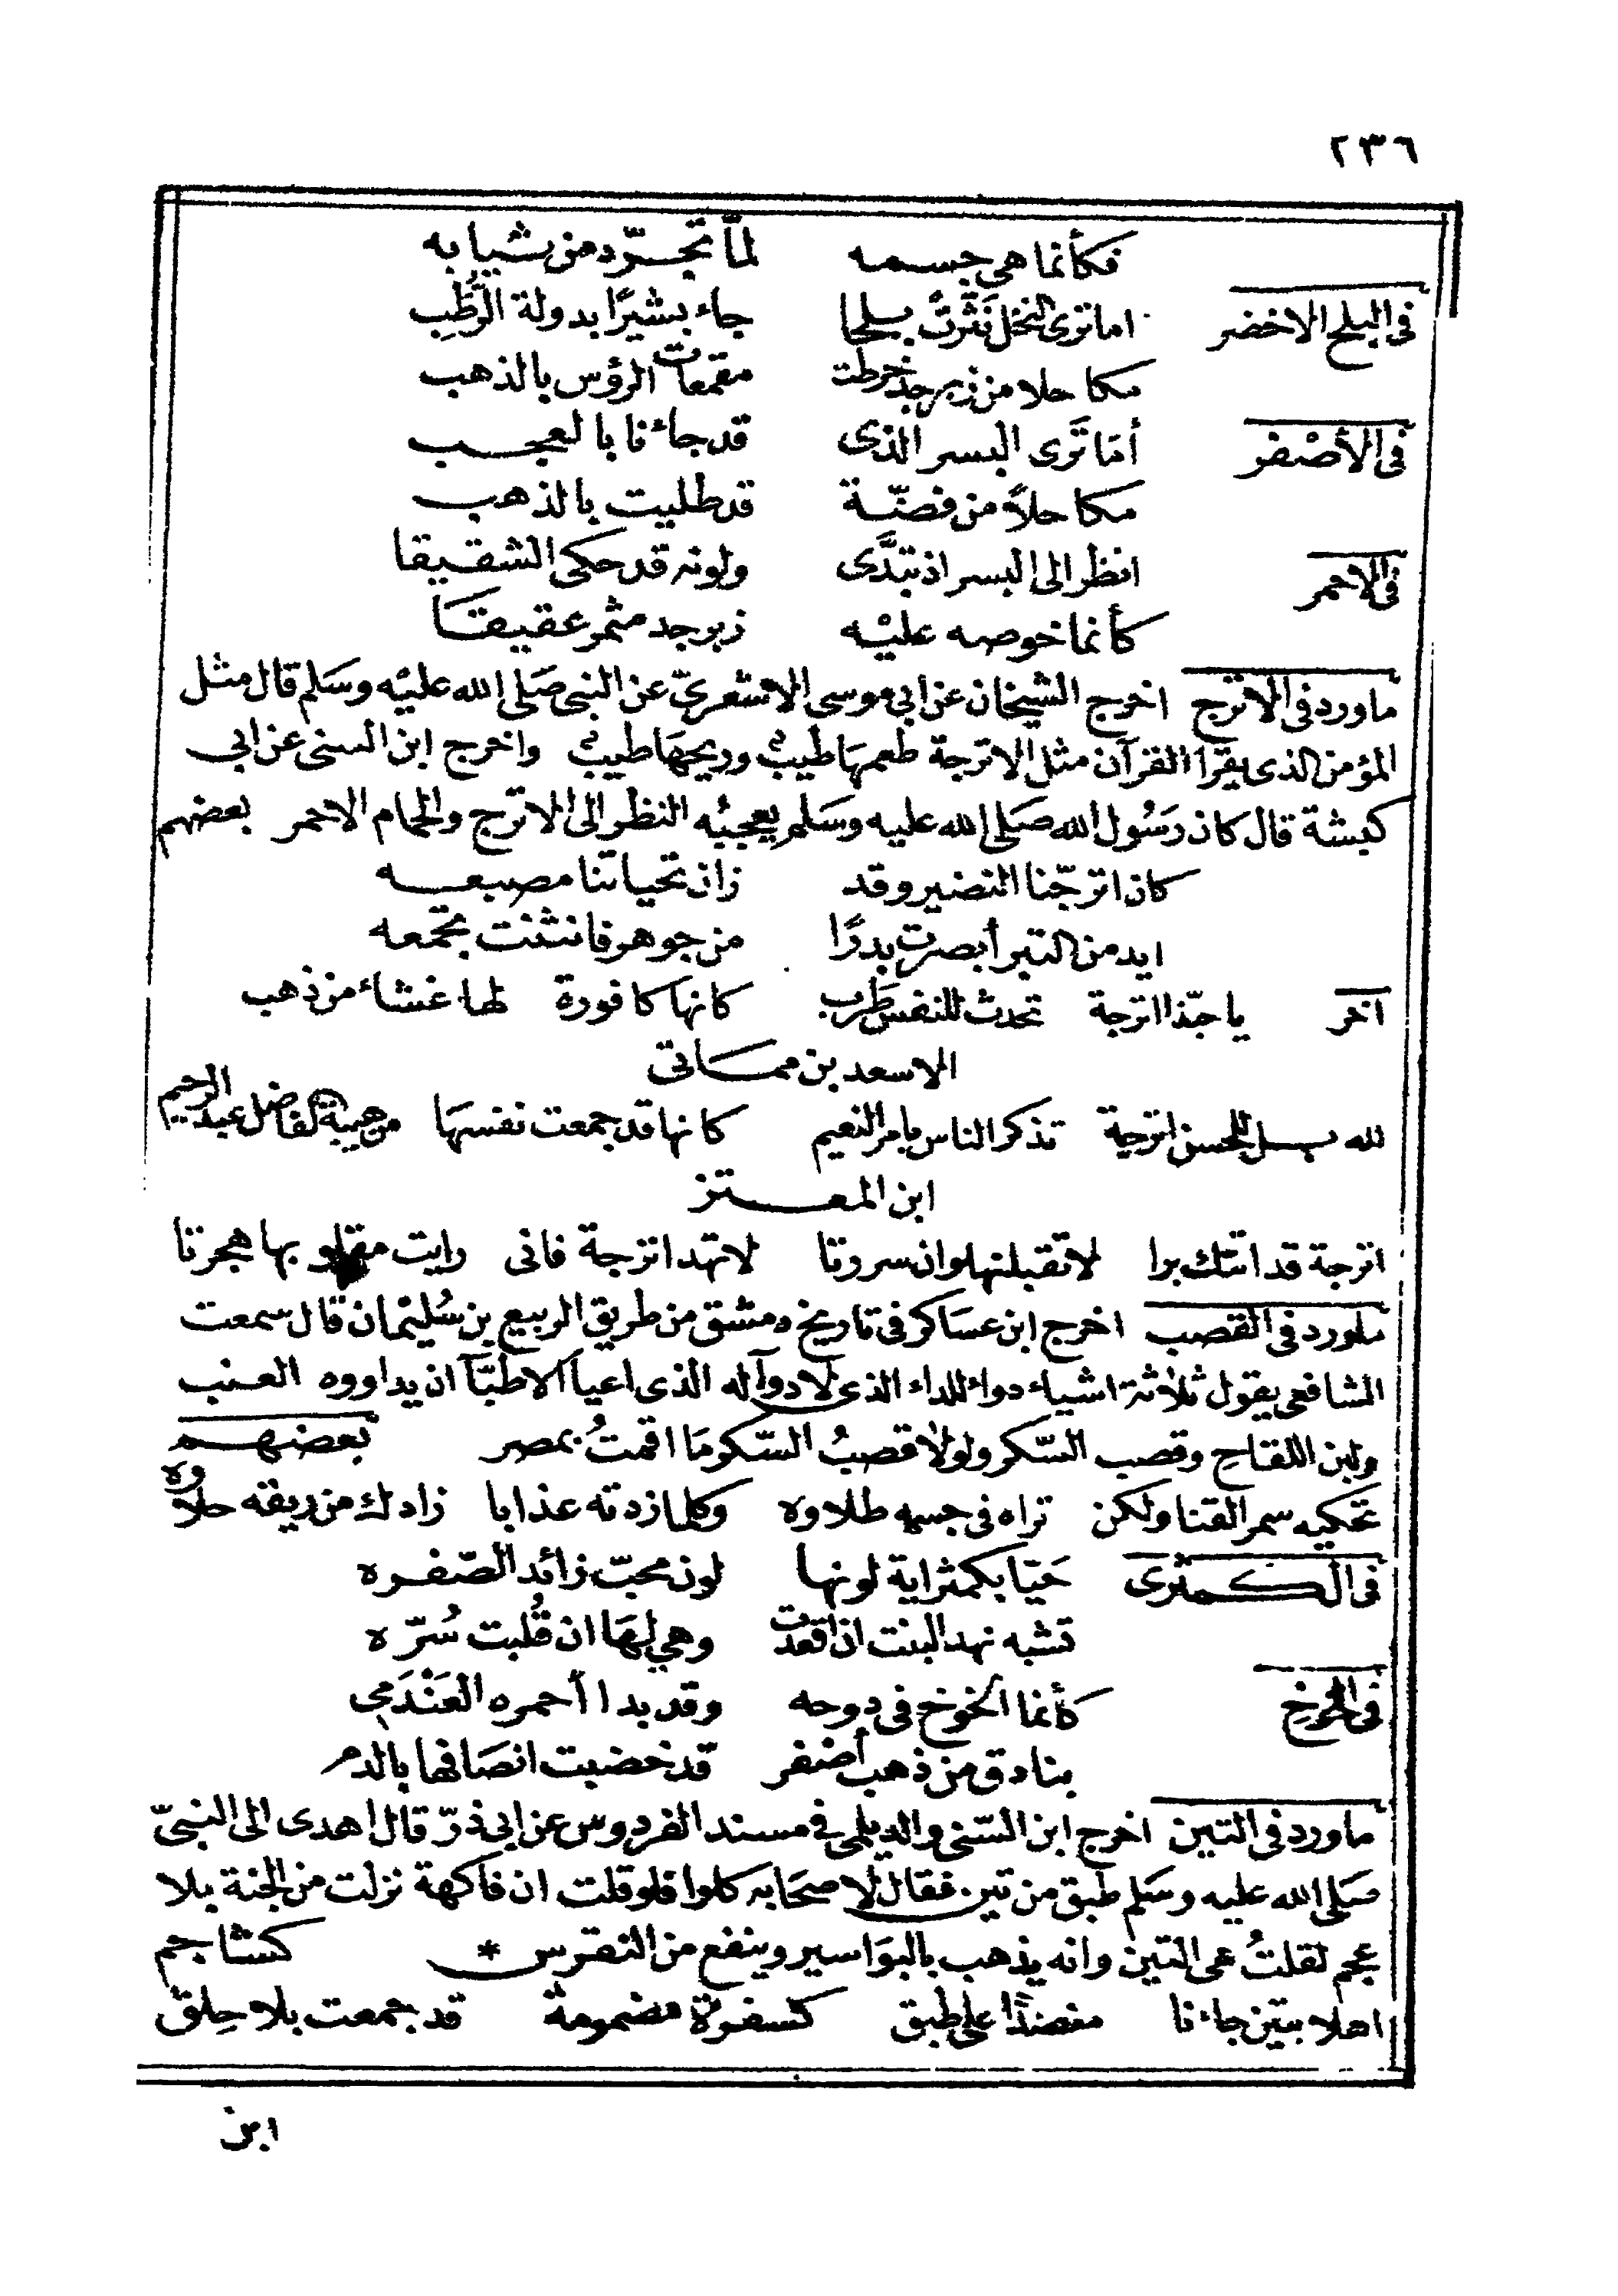 ٢٣٦
فكأنما هي جسمه لمّا تجرّد من ثيابه
في البلح الاخضر اما ترى النخل نَثَرَتْ بلحا جاء بشيرًا بدولة الرُّطَبِ
مكاحلا من زبرجد خرطت مقمعات الرؤس بالذهب
في الأصْفر أمَا تَرى البسر الذى قد جاءنا بالعجب
مكاحلاً من فضّة قد طليت بالذهب
في الاحمر انظر الى البسر اذ تبدَّى ولونه قد حكى الشقيقا
كأنما خوصه عليْه زبرجد مثمر عقيقا
ما ورد في الاترج اخرج الشيخان عن ابي موسى الاشعريّ عن النبي صَلى الله عليْه وسَلم قال مثل
المؤمن الذى يقرأ القرآن مثل الاترجة طعمهَا طيبٌ وريحهَا طيبٌ واخرج ابن السنى عن ابي
كبشة قال كان رسُول الله صَلى الله عليه وسَلم يعجبُه النظر الى الاترج والحمام الاحمر بعضهم
كان اترجّنا النضير وقد زان تحياتنا مصبعه
ايد من التبر أبصرت بدرًا من جوهر فانثنت تجمعه
آخر يا حبّذا اترجة تحدث للنفس طرب كانها كافورة لها غشاء من ذهب
الاسعد بن مماتى
لله بل للحسن اترجة تذكر الناس بامر النعيم كانها قد جمعت نفسهَا من هيبة الفاضل عبد الرحيم
ابن المعتز
اترجة قد اتتك برا لا تقبلنها وان سررتا لا تهد اترجة فانى رايت مقلوبها هجرتا
ما ورد في القصب اخرج ابن عسَاكر في تاريخ دمشق من طريق الربيع بن سُليْمان قال سمعت
الشافعى يقول ثلاثة اشياء دواء للداء الذى لا دوآ له الذى اعيا الاطبَّآ ان يداووه العنب
ولبن اللقاح وقصب السّكر ولولا قصبُ السّكر مَا اقمتُ بمصر بعضهم
تحكيه سمر القنا ولكن تراه في جسمه طلاوه وكلما زدته عذابا زادك من ريقه حلاوه
في الكمثرى حَيّا بكمثراية لونها لون محبّ زائد الصّفره
تشبه نهد البنت ان اقعدت وهي لهَا ان قُلبت سُرّه
في الخوخ كأنما الخوخ في دوحه وقد بدا أحمره العَنْدَمِي
بنادق من ذهب أصْفر قد خضبت انصَافها بالدم
ما ورد في التين اخرج ابن السّنى والديلمى في مسند الفردوس عن ابي ذرّ قال اهدى الى النبيّ
صَلى الله عليه وسَلم طبق من تين فقال لاصحَابه كلوا فلو قلت ان فاكهة نزلت من الجنة بلا
عجم لقلتُ هى التين وانه يذهب بالبوَاسير وينفع من النقرس * كشاجم
اهلا بتين جاءنا منضدًا على طبق كسفرة مضمومة قد جمعت بلا حِلق
ابن